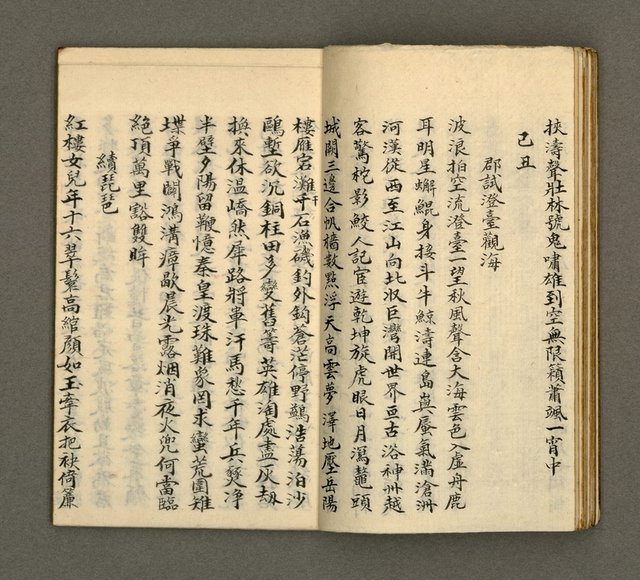 挾濤聲壯林號鬼嘯雄到空無限籟蕭颯一宵中
己丑
郡試澄臺觀海
波浪拍空流澄臺一望秋風聲含大海雲色入虛舟鹿
耳明星蠏鯤身接斗牛鯨濤連島嶼蜃氣滿滄洲
河漢從西至江山向北收巨灣開世界亘古浴神州越
客驚梔影鮫人記宦遊乾坤旋虎眼日月瀉鼇頭
城關三邊合帆檣數點浮天高雲夢澤地壓岳陽
樓雁宕灘千石漁磯釣外鈎蒼茫停野鷁浩蕩泊沙
鷗塹欲沉銅柱田多變舊籌英雄淘處盡灰劫
換來休溫嶠然犀路將軍汗馬愁千年兵燹淨
半壁夕陽留鞭憶秦皇渡珠難象罔求蠻荒圍雉
堞爭戰闢鴻溝瘴歇晨光露烟消夜火兜何當臨
絕頂萬里豁雙眸
續琵琶
紅樓女兒年十六翠鬟高綰顏如玉牽衣把袂倚簾